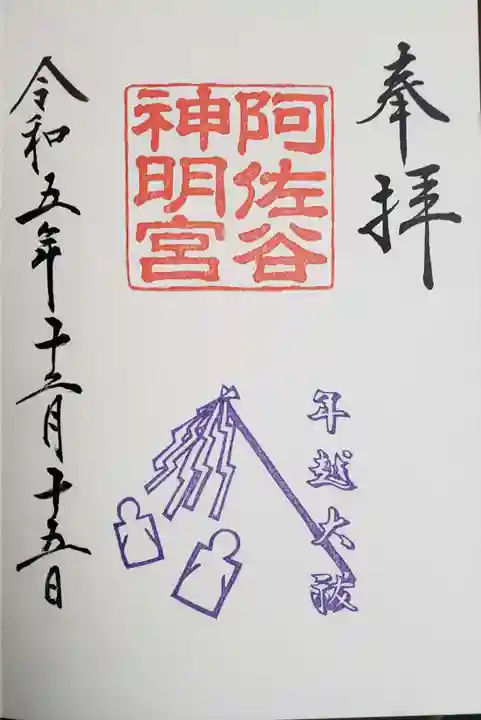 奉拝
阿佐谷
神明宮
年越大祓
令和五年十二月十五日